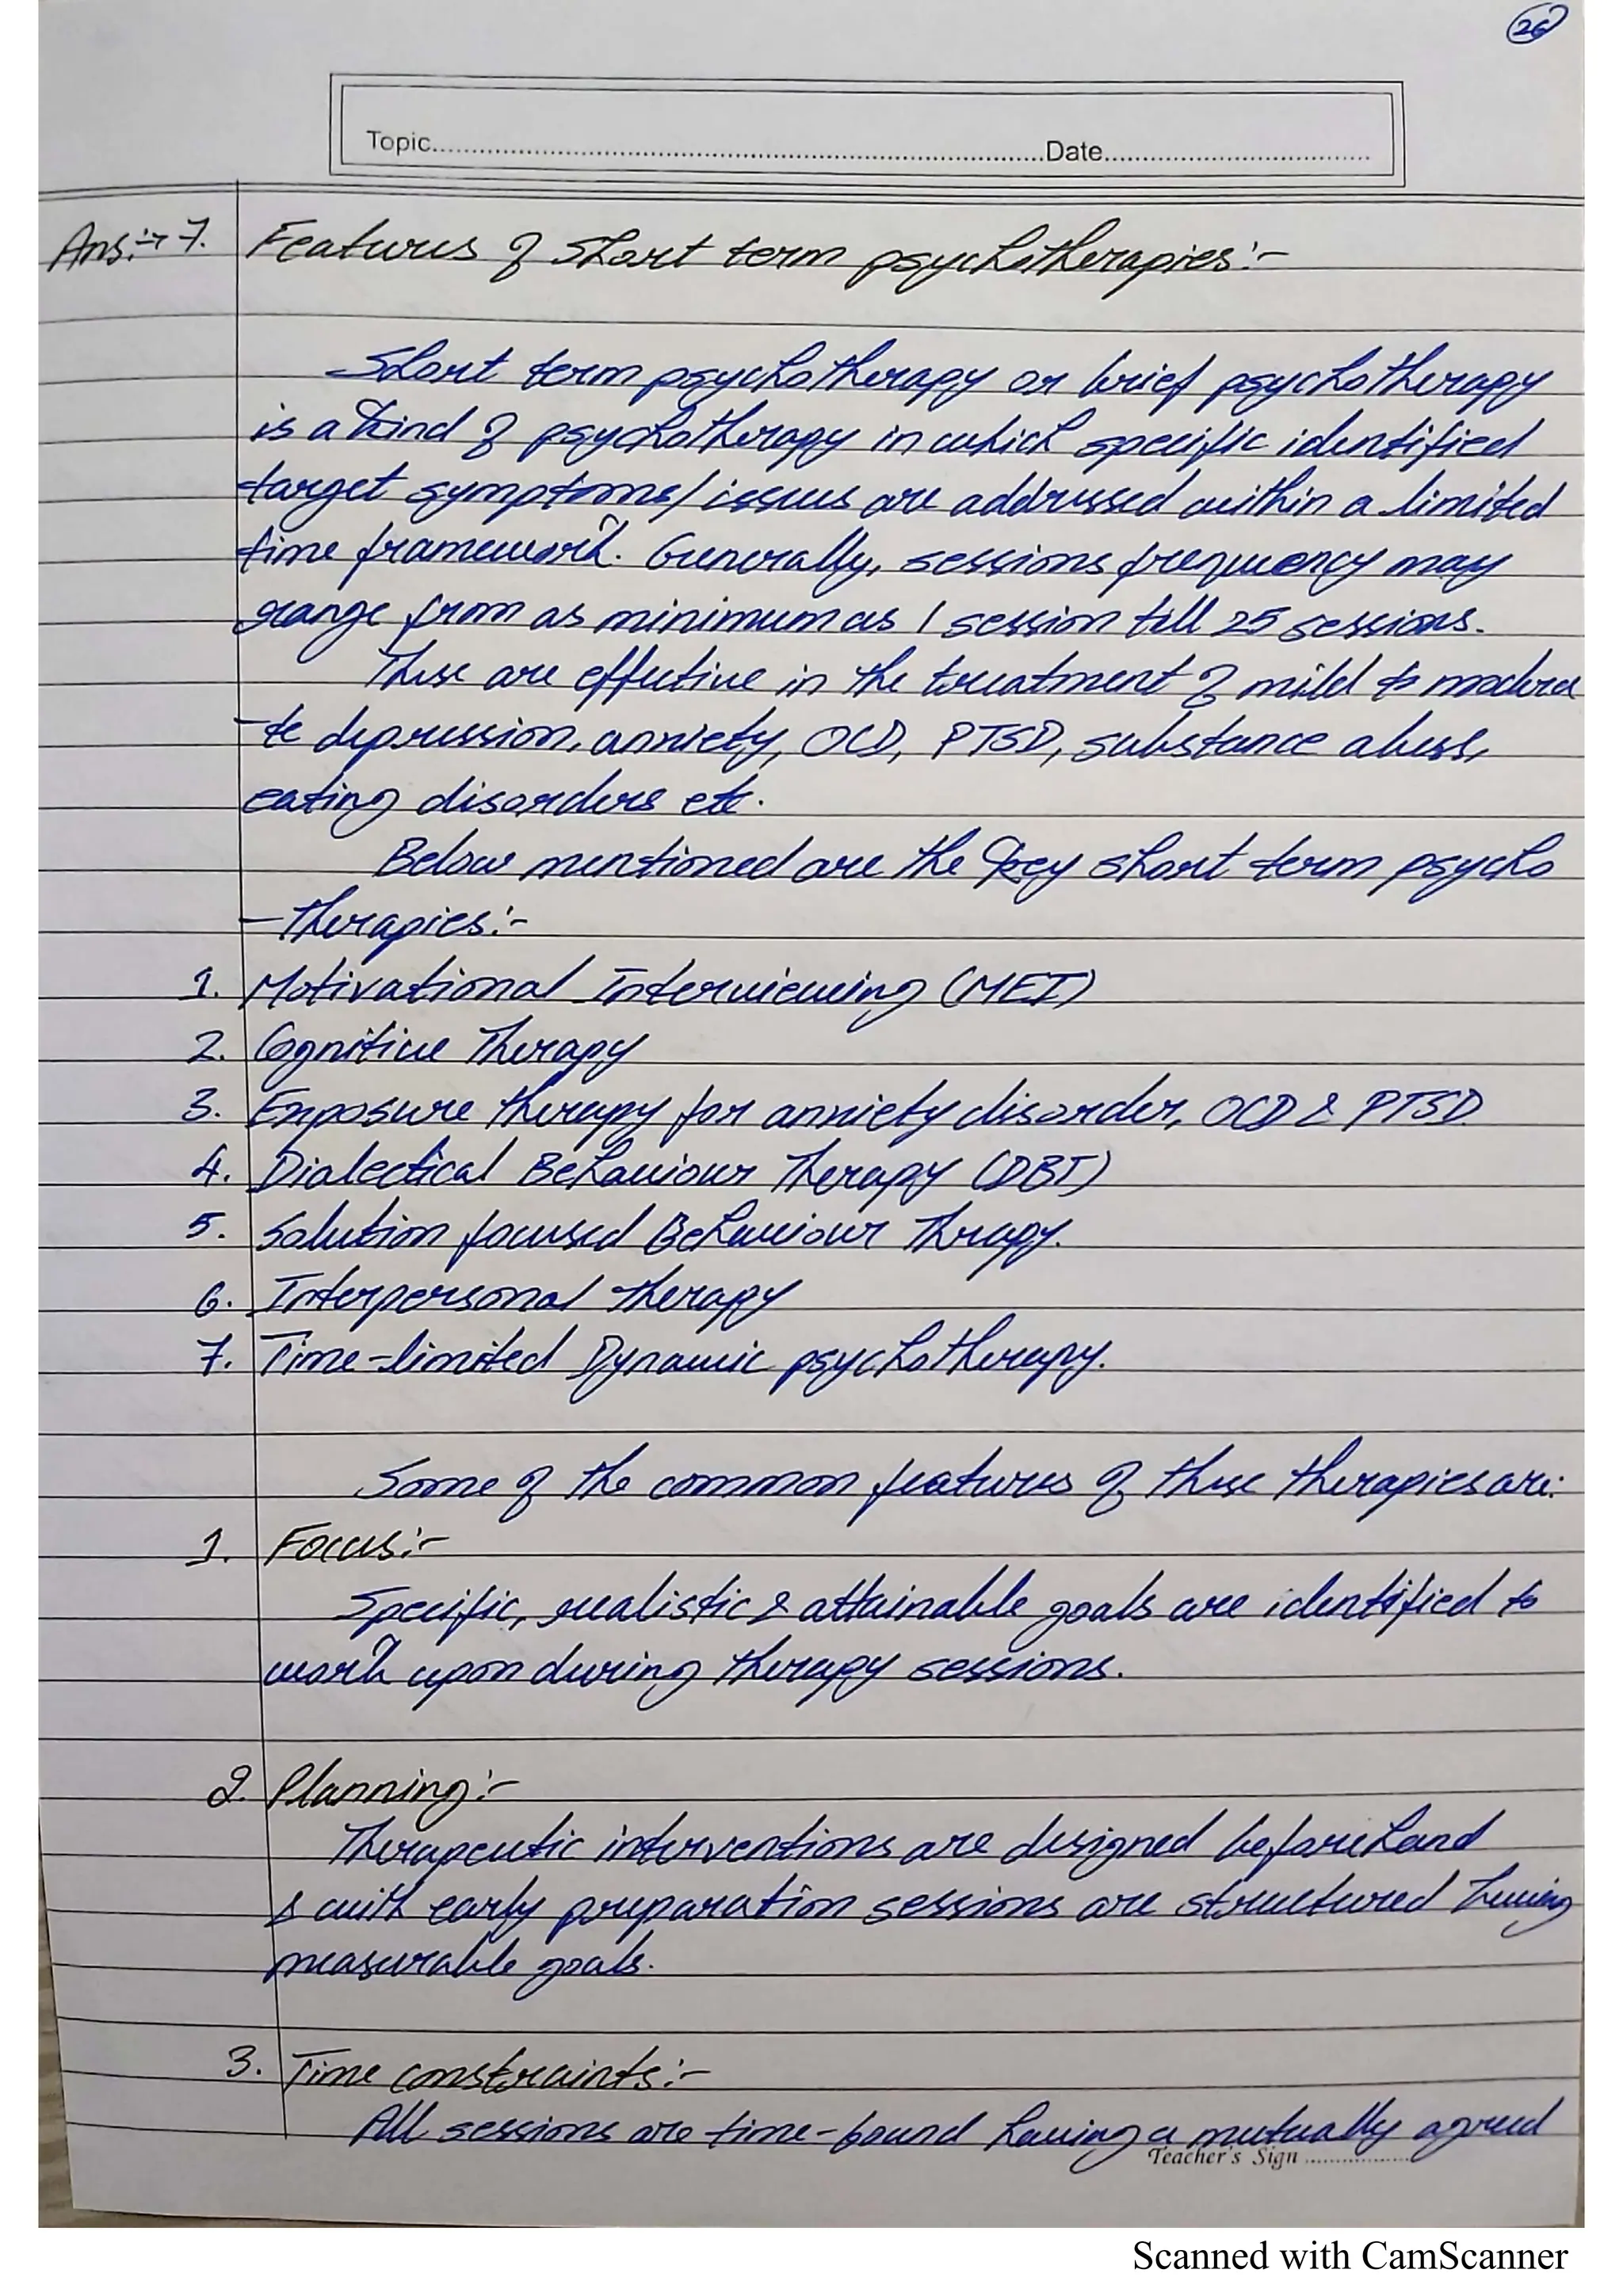 26
Topic..........Date..........
Ans:→ 7. Features of Short term psychotherapies:-
Short term psychotherapy or brief psychotherapy
is a kind of psychotherapy in which specific identified
target symptoms/issues are addressed within a limited
time framework. Generally, sessions frequency may
range from as minimum as 1 session till 25 sessions.
These are effective in the treatment of mild to modera
-te depression, anxiety, OCD, PTSD, substance abuse,
eating disorders etc.
Below mentioned are the key short term psycho
-therapies:-
1. Motivational Interviewing (MEI)
2. Cognitive Therapy
3. Exposure therapy for anxiety disorder, OCD & PTSD.
4. Dialectical Behaviour Therapy (DBT)
5. Solution focused Behaviour Thrapy.
6. Interpersonal therapy
7. Time-limited Dynamic psychotherapy.
Some of the common features of these therapies are:
1. Focus:-
Specific, realistic & attainable goals are identified to
work upon during therapy sessions.
2. Planning:-
Therapeutic interventions are designed beforehand
& with early preparation sessions are structured having
measurable goals.
3. Time constraints:-
All sessions are time-bound having a mutually agreed
Teacher's Sign ..........
Scanned with CamScanner